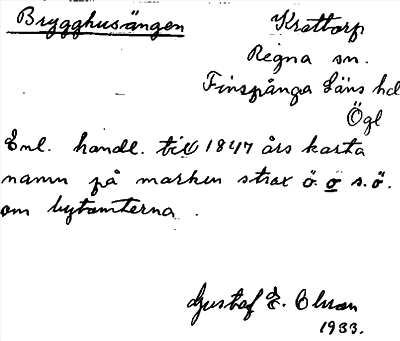 Brygghusängen
Krattorp
Regna sn.
Finspånga läns hd
Ögl
Enl. handl. till 1847 års karta
namn på marken strax ö. o s.ö.
om bytomterna.
Gustaf E. Olsson
1933.